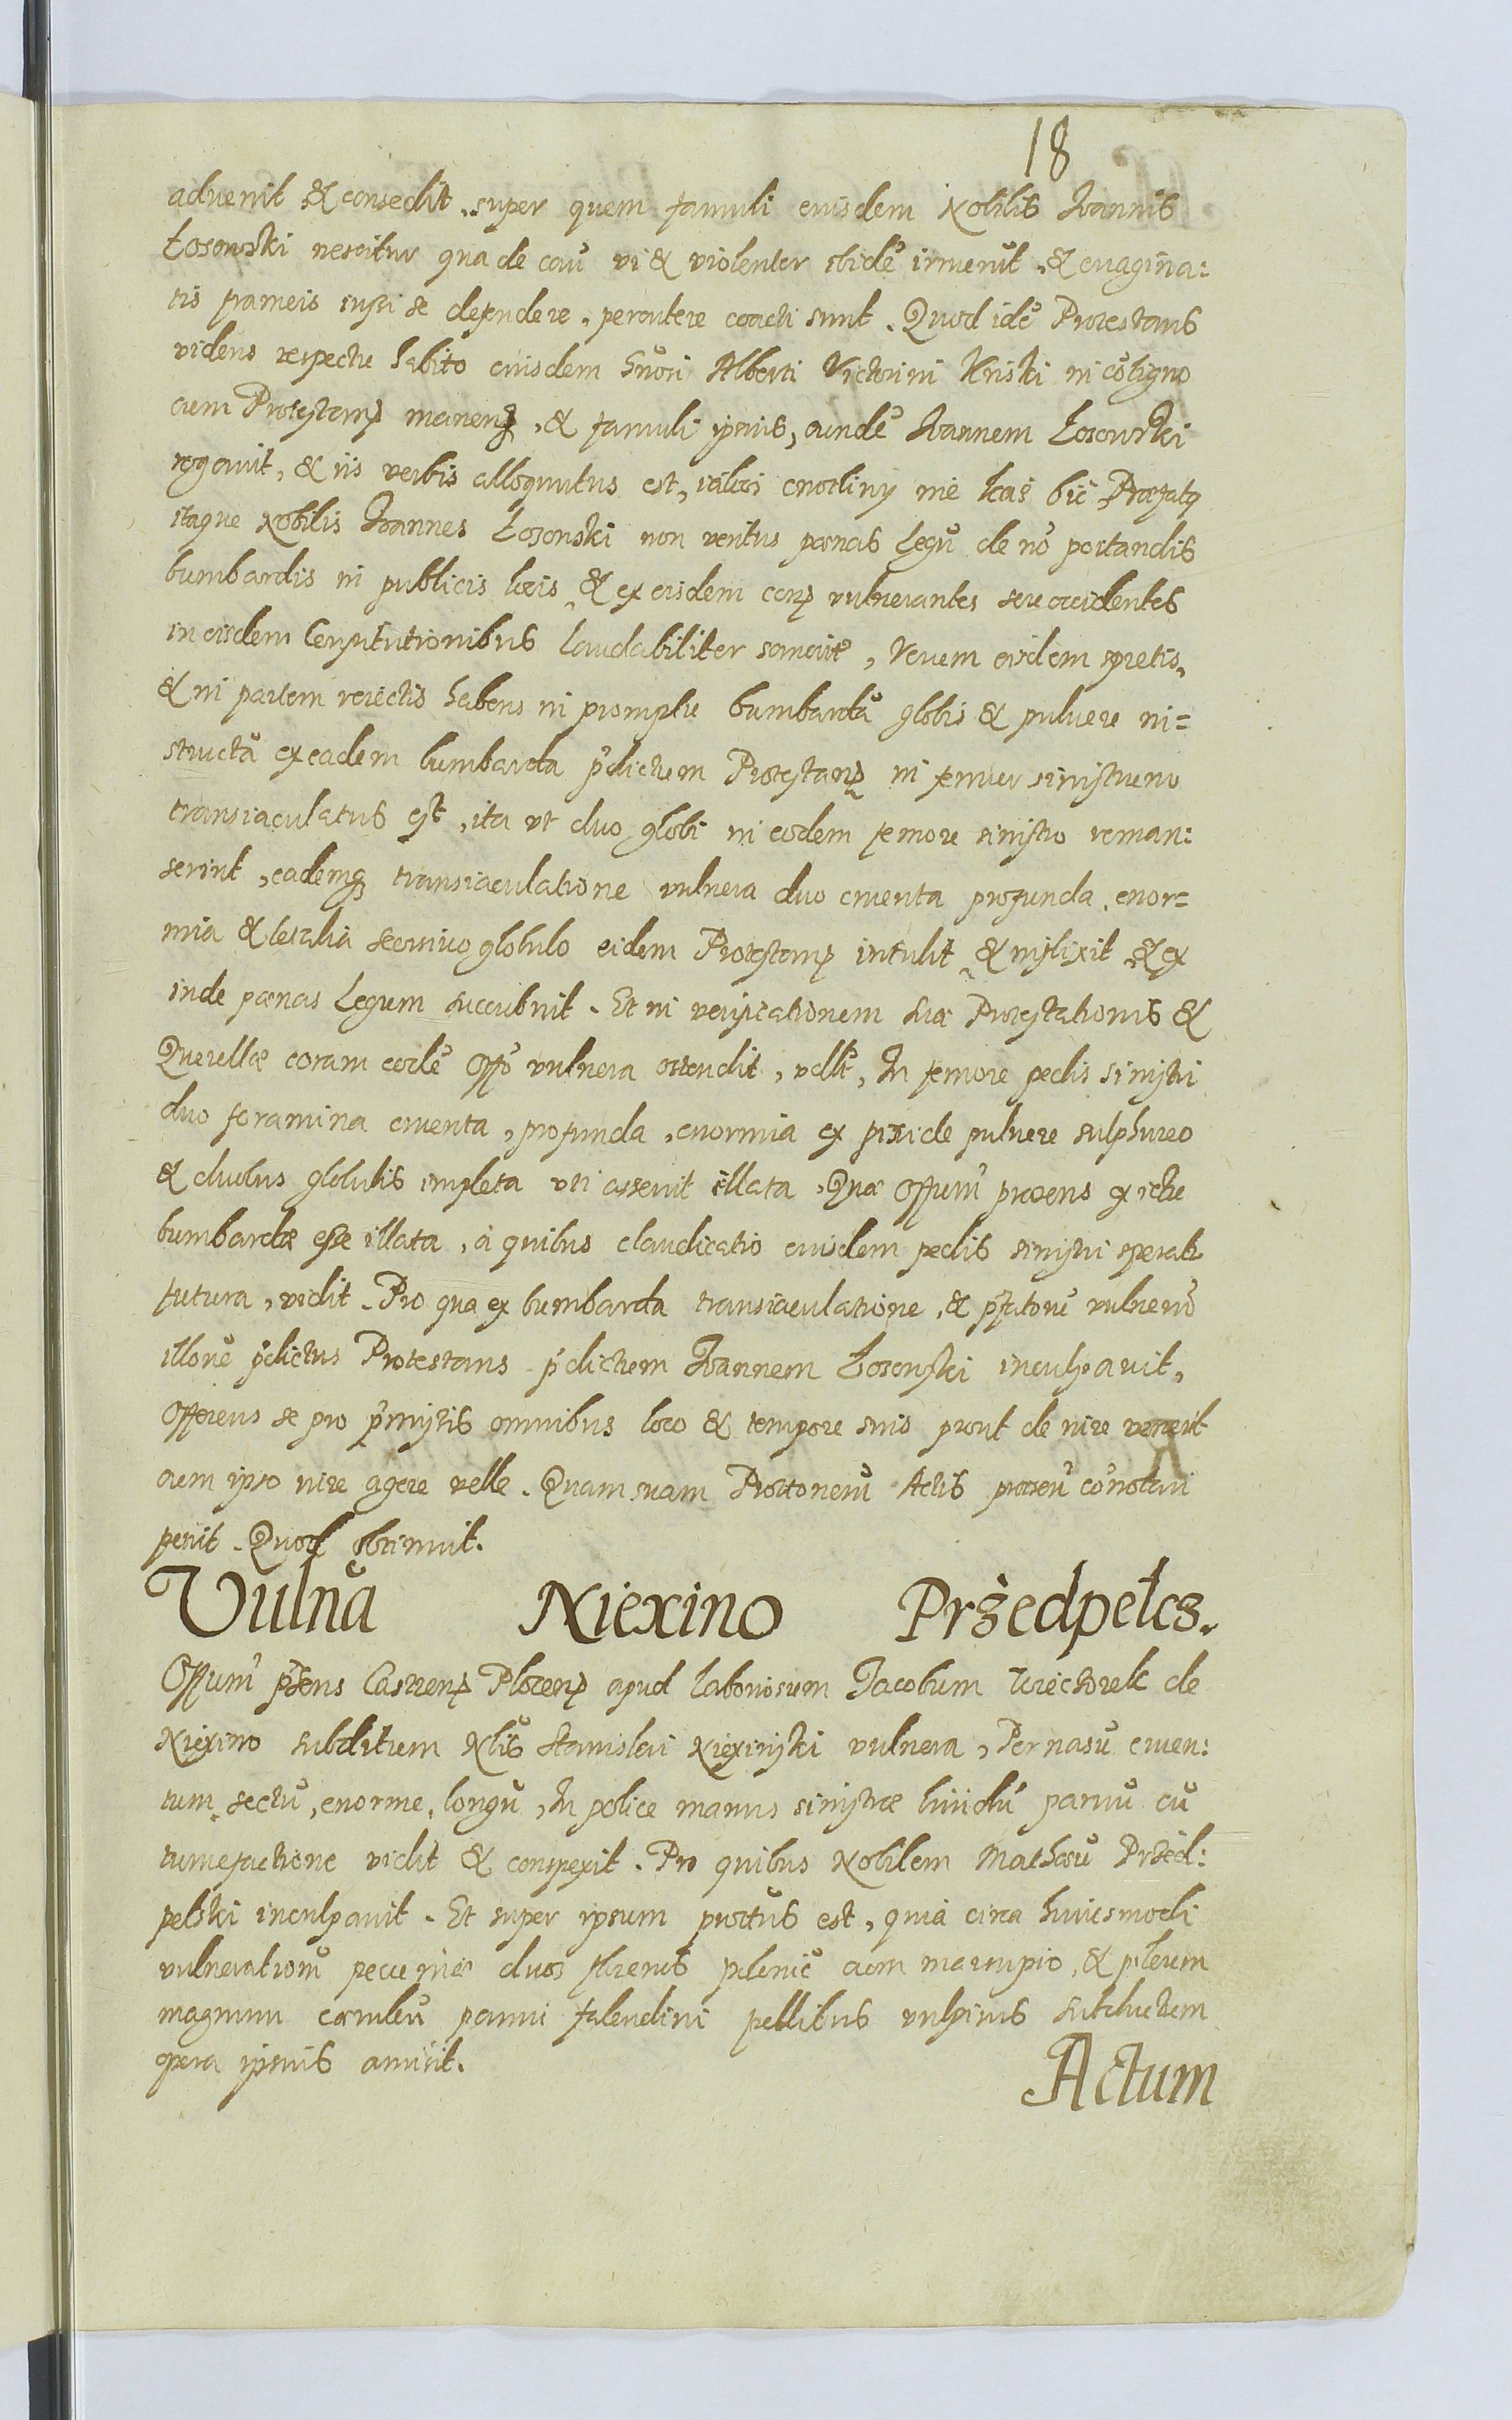 18
aduenit & consedit, super quem famuli eiusdem Nobilis Joannis
Łosowski nescitur qua de cau vi & violenter ibidē irruerūt, & euagina:
tis frameis ipsi se defendere, percutere coacti sunt. Quod idē Protestans
videns respectu habito eiusdem Alberti Victorini Kriski in
cum Protestan manen, & famuli ipsius, eundē Joannem Łosowski
rogauit, & iis verbis alloquutus est, cnotliwy nie kaź bić Præfatq
itaque Nobilis Joannes Łosowski non veritus pœnas Legū de nō portandis
bumbardis in publicis locis, & ex eisdem vulnerantes seu occidentes
in eisdem Constitutionibus laudabiliter , Verum eisdem spretis,
& in partem reiectis habens in promptu bumbardā globis & puluere in=
structā ex eadem bumbarda p̄dictum Protestan in femur sinistrum
transiaculatus est, ita vt duo globi in eodem femore sinistro reman:
serint, eademq transiaculatione vulnera duo cruenta profunda, enor=
mia & letalia globulo eidem Protestan intulit, & inflixit, & ex
inde pœnas Legum succubuit. Et in verificationem suæ Protestationis &
Querellæ coram eodē Offō vulnera ostendit, vdlt, In femore pedis sinistri
duo foramina cruenta, profunda, enormia ex pixide puluere sulphureo
& duobus globulis impleta vti asseruit illata, Quæ Offum præsens ex ictu
bumbardæ esse illata, à quibus claudicatio eiusdem pedis sinistri sperat
futura, vidit. Pro qua ex bumbarda transiaculatione, & p̄fatorū vulnerū
illorū p̄dictus Protestans p̄dictum Joannem Łosowski inculpauit,
offerens se pro p̄missis omnibus loco & tempore suis prout de iure venerit
cum ipso iure agere velle. Quam suam Prottonem Actis præsen cōnotari
petiit. Quod obtinuit.
Vulnā Niexino Przedpełcz.
Offum p̄sens Castren Plocen apud laboriosum Jacobum Wiectorek de
Niexino subditum Nlis Stanislai Niexinski vulnera, Per nasū cruen:
tum, sectū, enorme, longū, In police manus sinistræ liuidū paruū cū
tumefactione vidit & conspexit. Pro quibus Nobilem Mathæū Przed:
pelski inculpauit. Et super ipsum prottus est, quia circa huiusmodi
vulnerationū pecuniæ duos florenos polonic cum marsupio, & pileum
magnum cæruleū panni falendini pellibus vulpinis subductum
opera ipsius amisit.
Actum